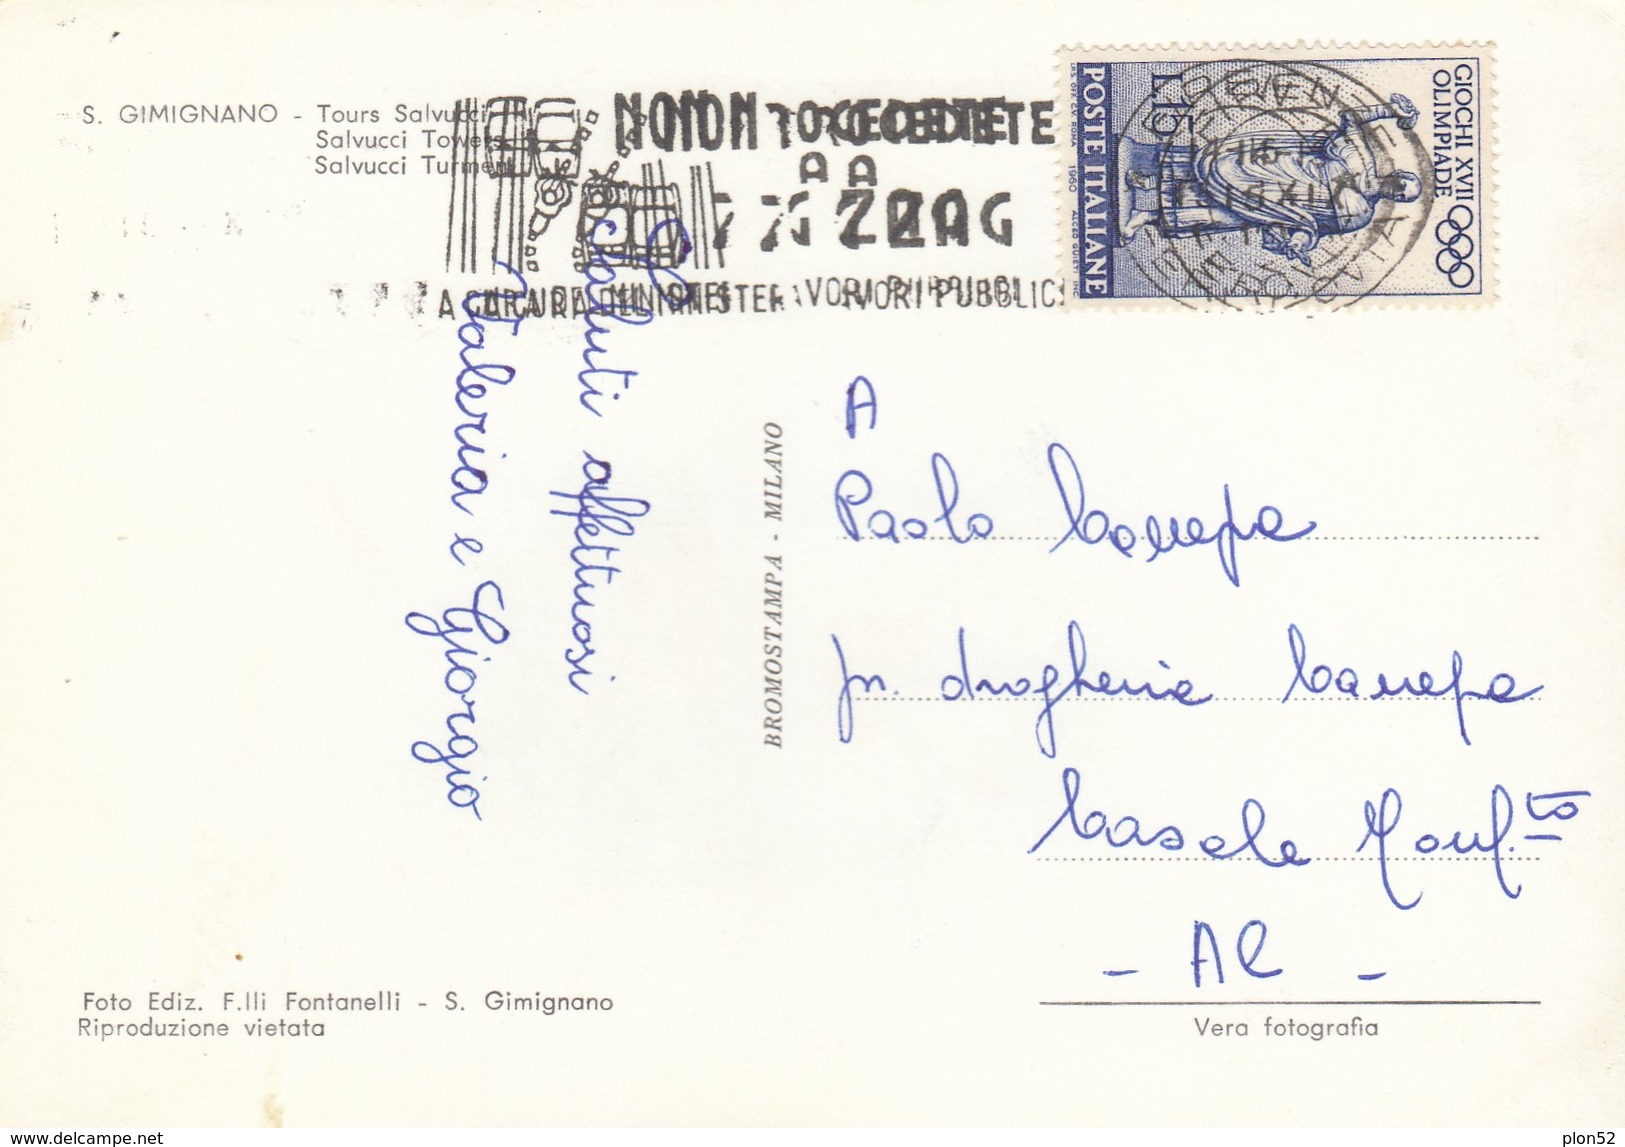 S. GIMIGNANO - Tours Salvucci
Salvucci Towers
Salvucci Turmen
NON PROCEDETE
A
ZIG ZAG
A CURA DEL MINISTER LAVORI PUBBLICI
GIOCHI XVII
OLIMPIADE
L.15
POSTE ITALIANE
I.P.S. OFF. C.V. ROMA 1960
Saluti affettuosi
Valeria e Giorgio
BROMOSTAMPA - MILANO
A
Paolo Canepa
pr. drogheria Canepa
Casale Monf.to
- Al -
Foto Ediz. F.lli Fontanelli - S. Gimignano
Riproduzione vietata
Vera fotografia
www.delcampe.net
plon52